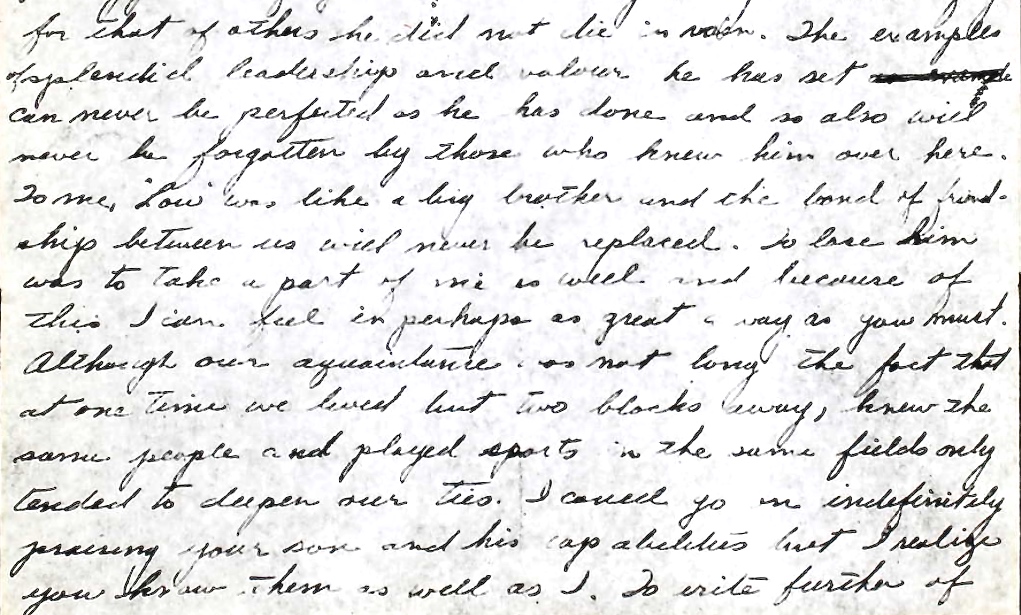 for that of others he did not die in vain. The examples
of splendid leadership and valour he has set
can never be perfected as he has done and so also will
never be forgotten by those who knew him over here.
To me, "Lou" was like a big brother and the bond of friend-
ship between us will never be replaced. To lose him
was to take a part of me as well and because of
this I can feel in perhaps as great a way as you must.
Although our aquaintance was not long the fact that
at one time we lived but two blocks away, knew the
same people and played sports in the same fields only
tended to deepen our ties. I could go on indefinitely
praising your son and his capabilities but I realize
you know them as well as I. To write further of